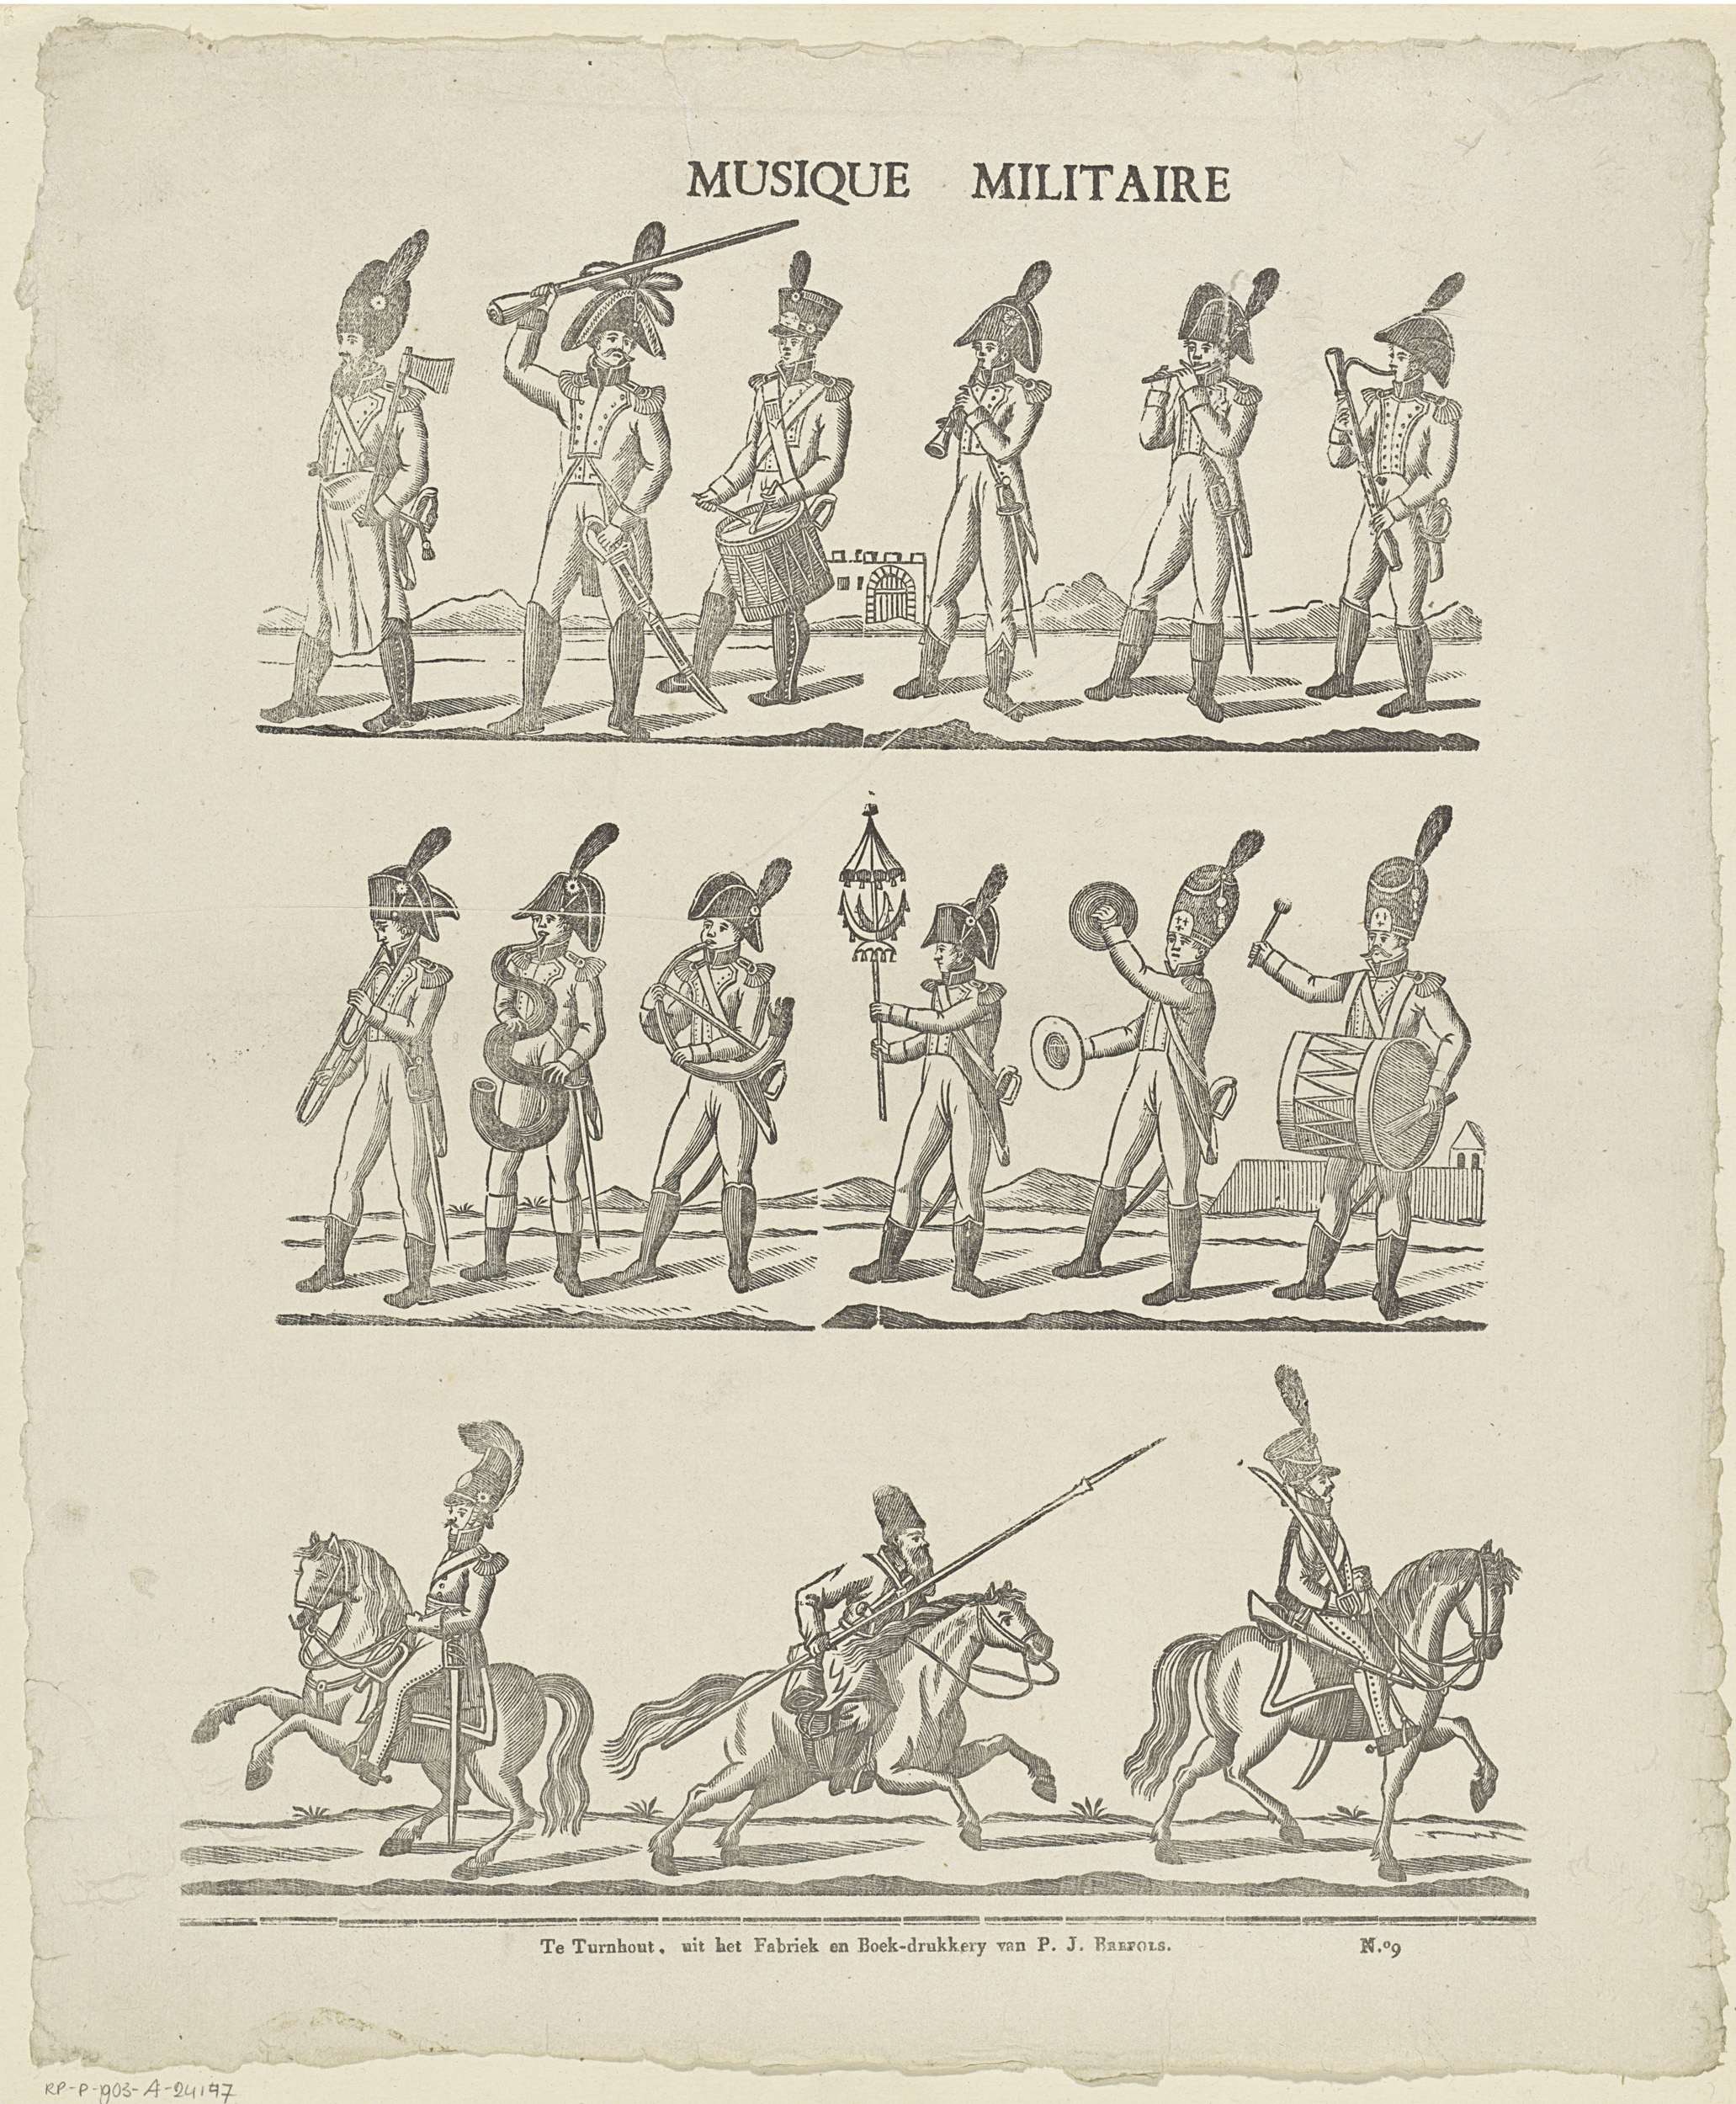 MUSIQUE MILITAIRE
Te Turnhout, uit het Fabriek en Boek-drukkery van P. J. BREPOLS. N.º9
RP-P-1903-A-24147